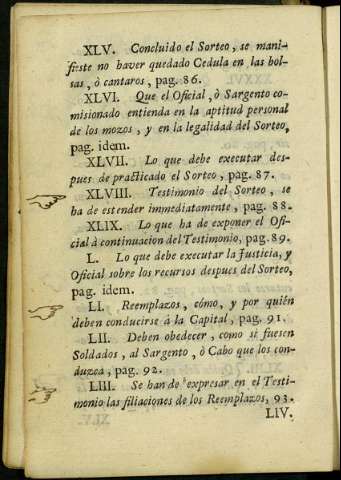 XLV. Concluido el Sorteo, se mani-
fieste no haver quedado Cedula en las bol-
sas, ò cantaros, pag. 86.
XLVI. Que el Oficial, ò Sargento co-
misionado entienda en la aptitud personal
de los mozos, y en la legalidad del Sorteo,
pag. idem.
XLVII. Lo que debe executar des-
pues de practicado el Sorteo, pag. 87.
XLVIII. Testimonio del Sorteo, se
ha de estender immediatamente, pag. 88.
XLIX. Lo que ha de exponer el Ofi-
cial à continuacion del Testimonio, pag. 89.
L. Lo que debe executar la Justicia, y
Oficial sobre los recursos despues del Sorteo,
pag. idem.
LI. Reemplazos, cómo, y por quién
deben conducirse à la Capital, pag. 91.
LII. Deben obedecer, como si fuesen
Soldados, al Sargento, ò Cabo que los con-
duzca, pag. 92.
LIII. Se han de expresar en el Testi-
monio las filiaciones de los Reemplazos, 93.
LIV.